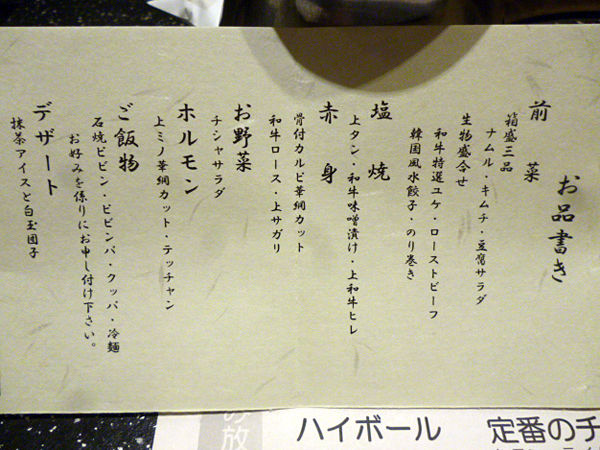 お品書き
前菜
箱盛三品
ナムル・キムチ・豆腐サラダ
生物盛合せ
和牛特選ユケ・ローストビーフ
韓国風水餃子・のり巻き
塩焼
上タン・和牛味噌漬け・上和牛ヒレ
赤身
骨付カルビ華網カット
和牛ロース・上サガリ
お野菜
チシャサラダ
ホルモン
上ミノ華網カット・テッチャン
ご飯物
石焼ビビン・ビビンバ・クッパ・冷麺
お好みを係りにお申し付け下さい。
デザート
抹茶アイスと白玉団子
の放
ハイボール
定番のチ